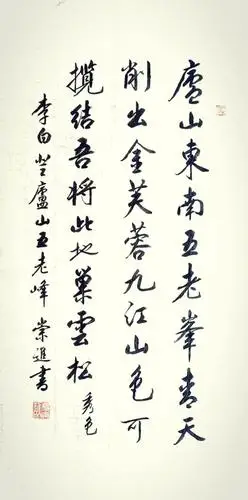 廬山東南五老峯青天
削出金芙蓉九江山色可
攬結吾將此地巢雲松 秀色
李白登廬山五老峰 崇進書